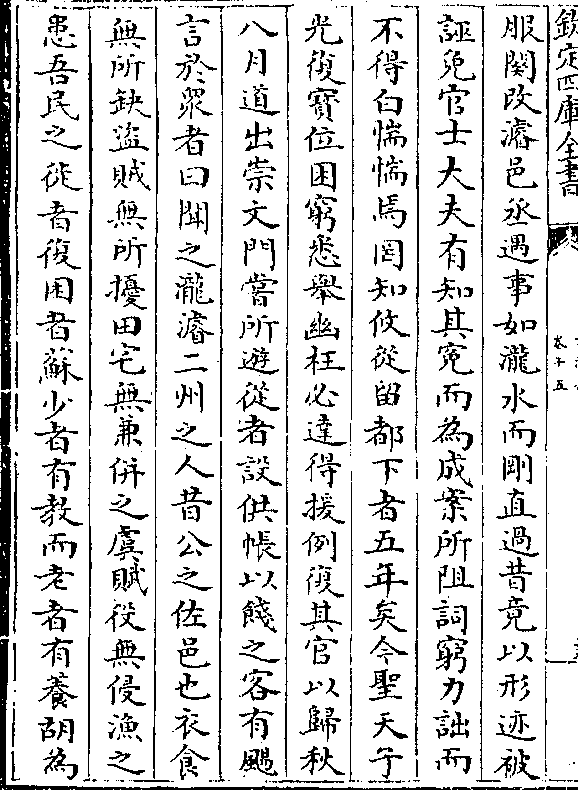 欽定四庫全書
卷十五
服闋改濬邑丞遇事如瀧水而剛直過昔竟以形迹被
誣免官士大夫有知其寃而為成案所阻詞窮力詘而
不得白惴惴焉罔知攸從留都下者五年矣今聖天子
光復寶位困窮悉舉幽枉必達得援例復其官以歸秋
八月道出崇文門嘗所遊從者設供帳以餞之客有颺
言於衆者曰聞之瀧濬二州之人昔公之佐邑也衣食
無所缺盗賊無所擾田宅無兼併之虞賦役無侵漁之
患吾民之徙者復困者蘇少者有教而老者有養胡為